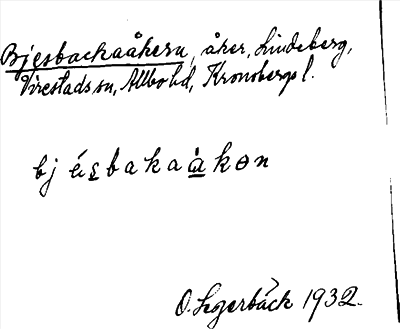 Bjesbackaåkern, åker, Lindeberg,
Virestads sn, Allbo hd, Kronobergs l.
bj ésbakaàkɵn
O. Legerbäck 1932.